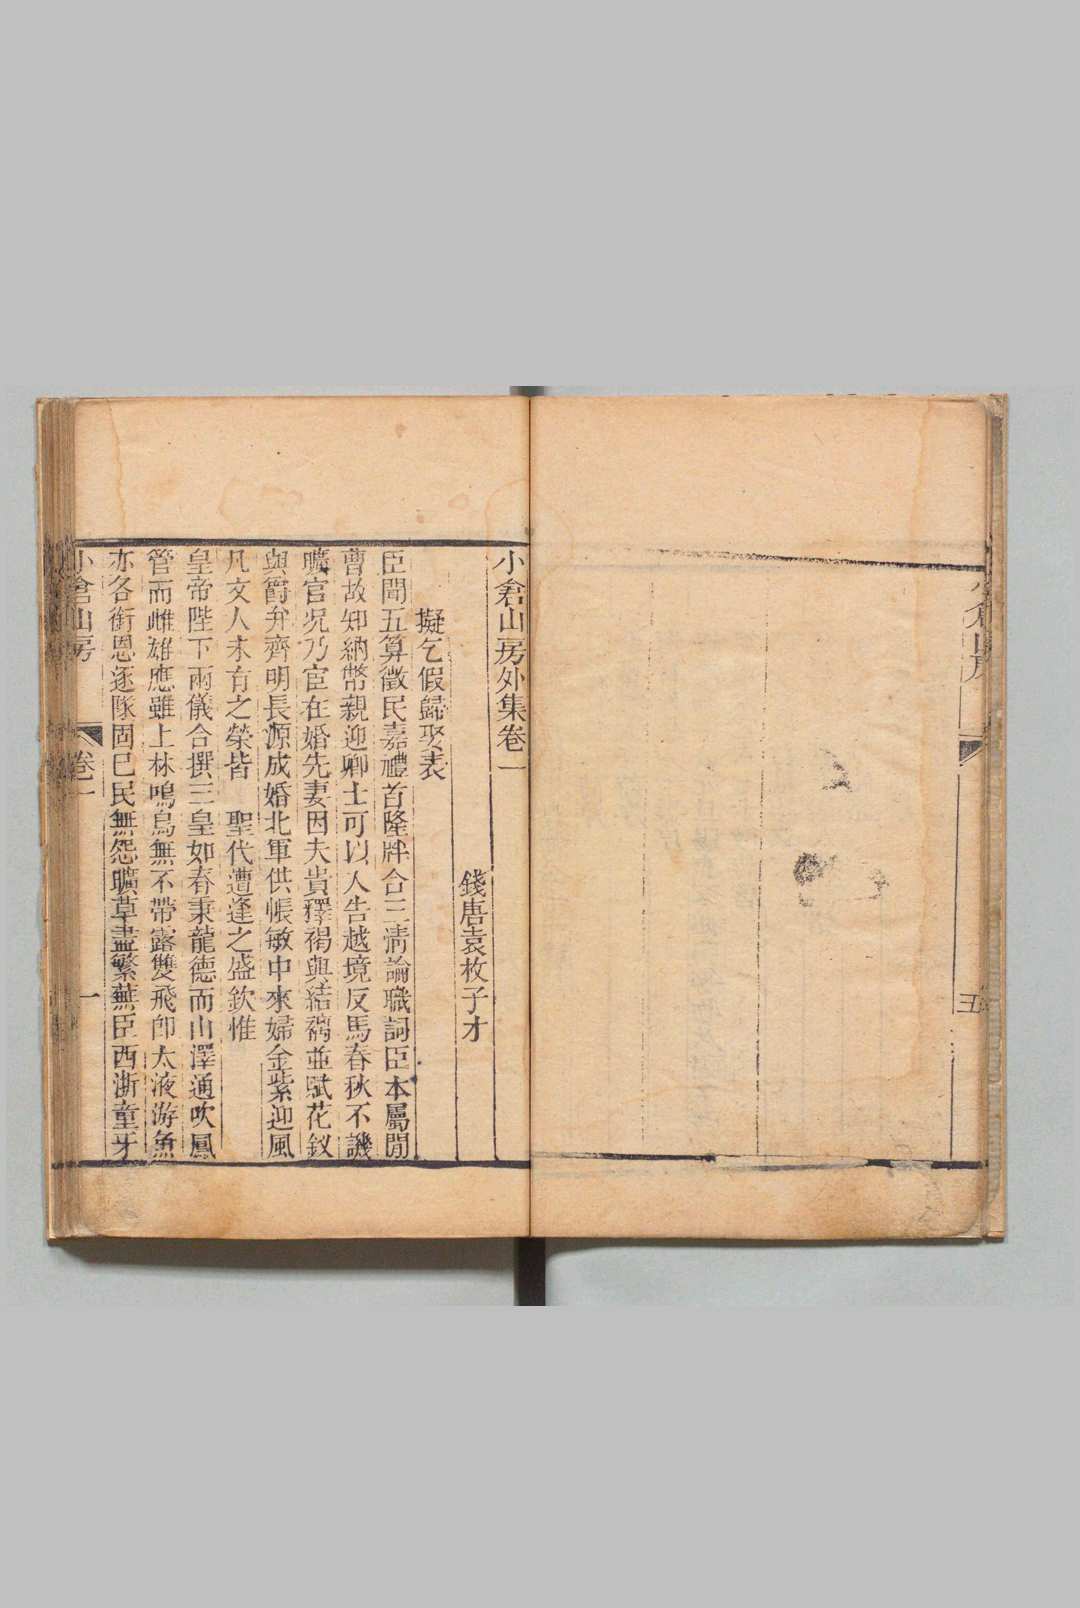 小倉山房
五
小倉山房外集卷一
錢唐袁枚子才
擬乞假歸娶表
臣聞五算徵民嘉禮首隆牉合三清論職詞臣本屬閒
曹故知納幣親迎卿士可以人告越境反馬春秋不譏
曠官况乃宦在婚先妻因夫貴釋褐與結褵並賦花釵
與爵弁齊明長源成婚北軍供帳敏中來婦金紫迎風
凡文人未有之榮皆 聖代遭逢之盛欽惟
皇帝陛下兩儀合撰三皇如春秉龍德而山澤通吹鳳
管而雌雄應雖上林鳴鳥無不帶露雙飛卽太液游魚
亦各銜恩逐隊固巳民無怨曠草盡繁蕪臣西浙童牙
小倉山房
卷一
一